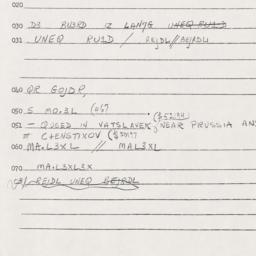 020
030 D3 RU3RD IZ LANJG UNEQ RU1D
031 UNEQ RU1D / REJDL//BEJRDL
040 QR GOJDP,
050 S MO.3L (067
051 — QUOED IN VATSLAVEK, NEAR PRUSSIA AN
= CHENSTIXOV
060 MA.L3XL // MAL3XL
070 MA.L3XL3X
REJDL UNEQ BEJRDL